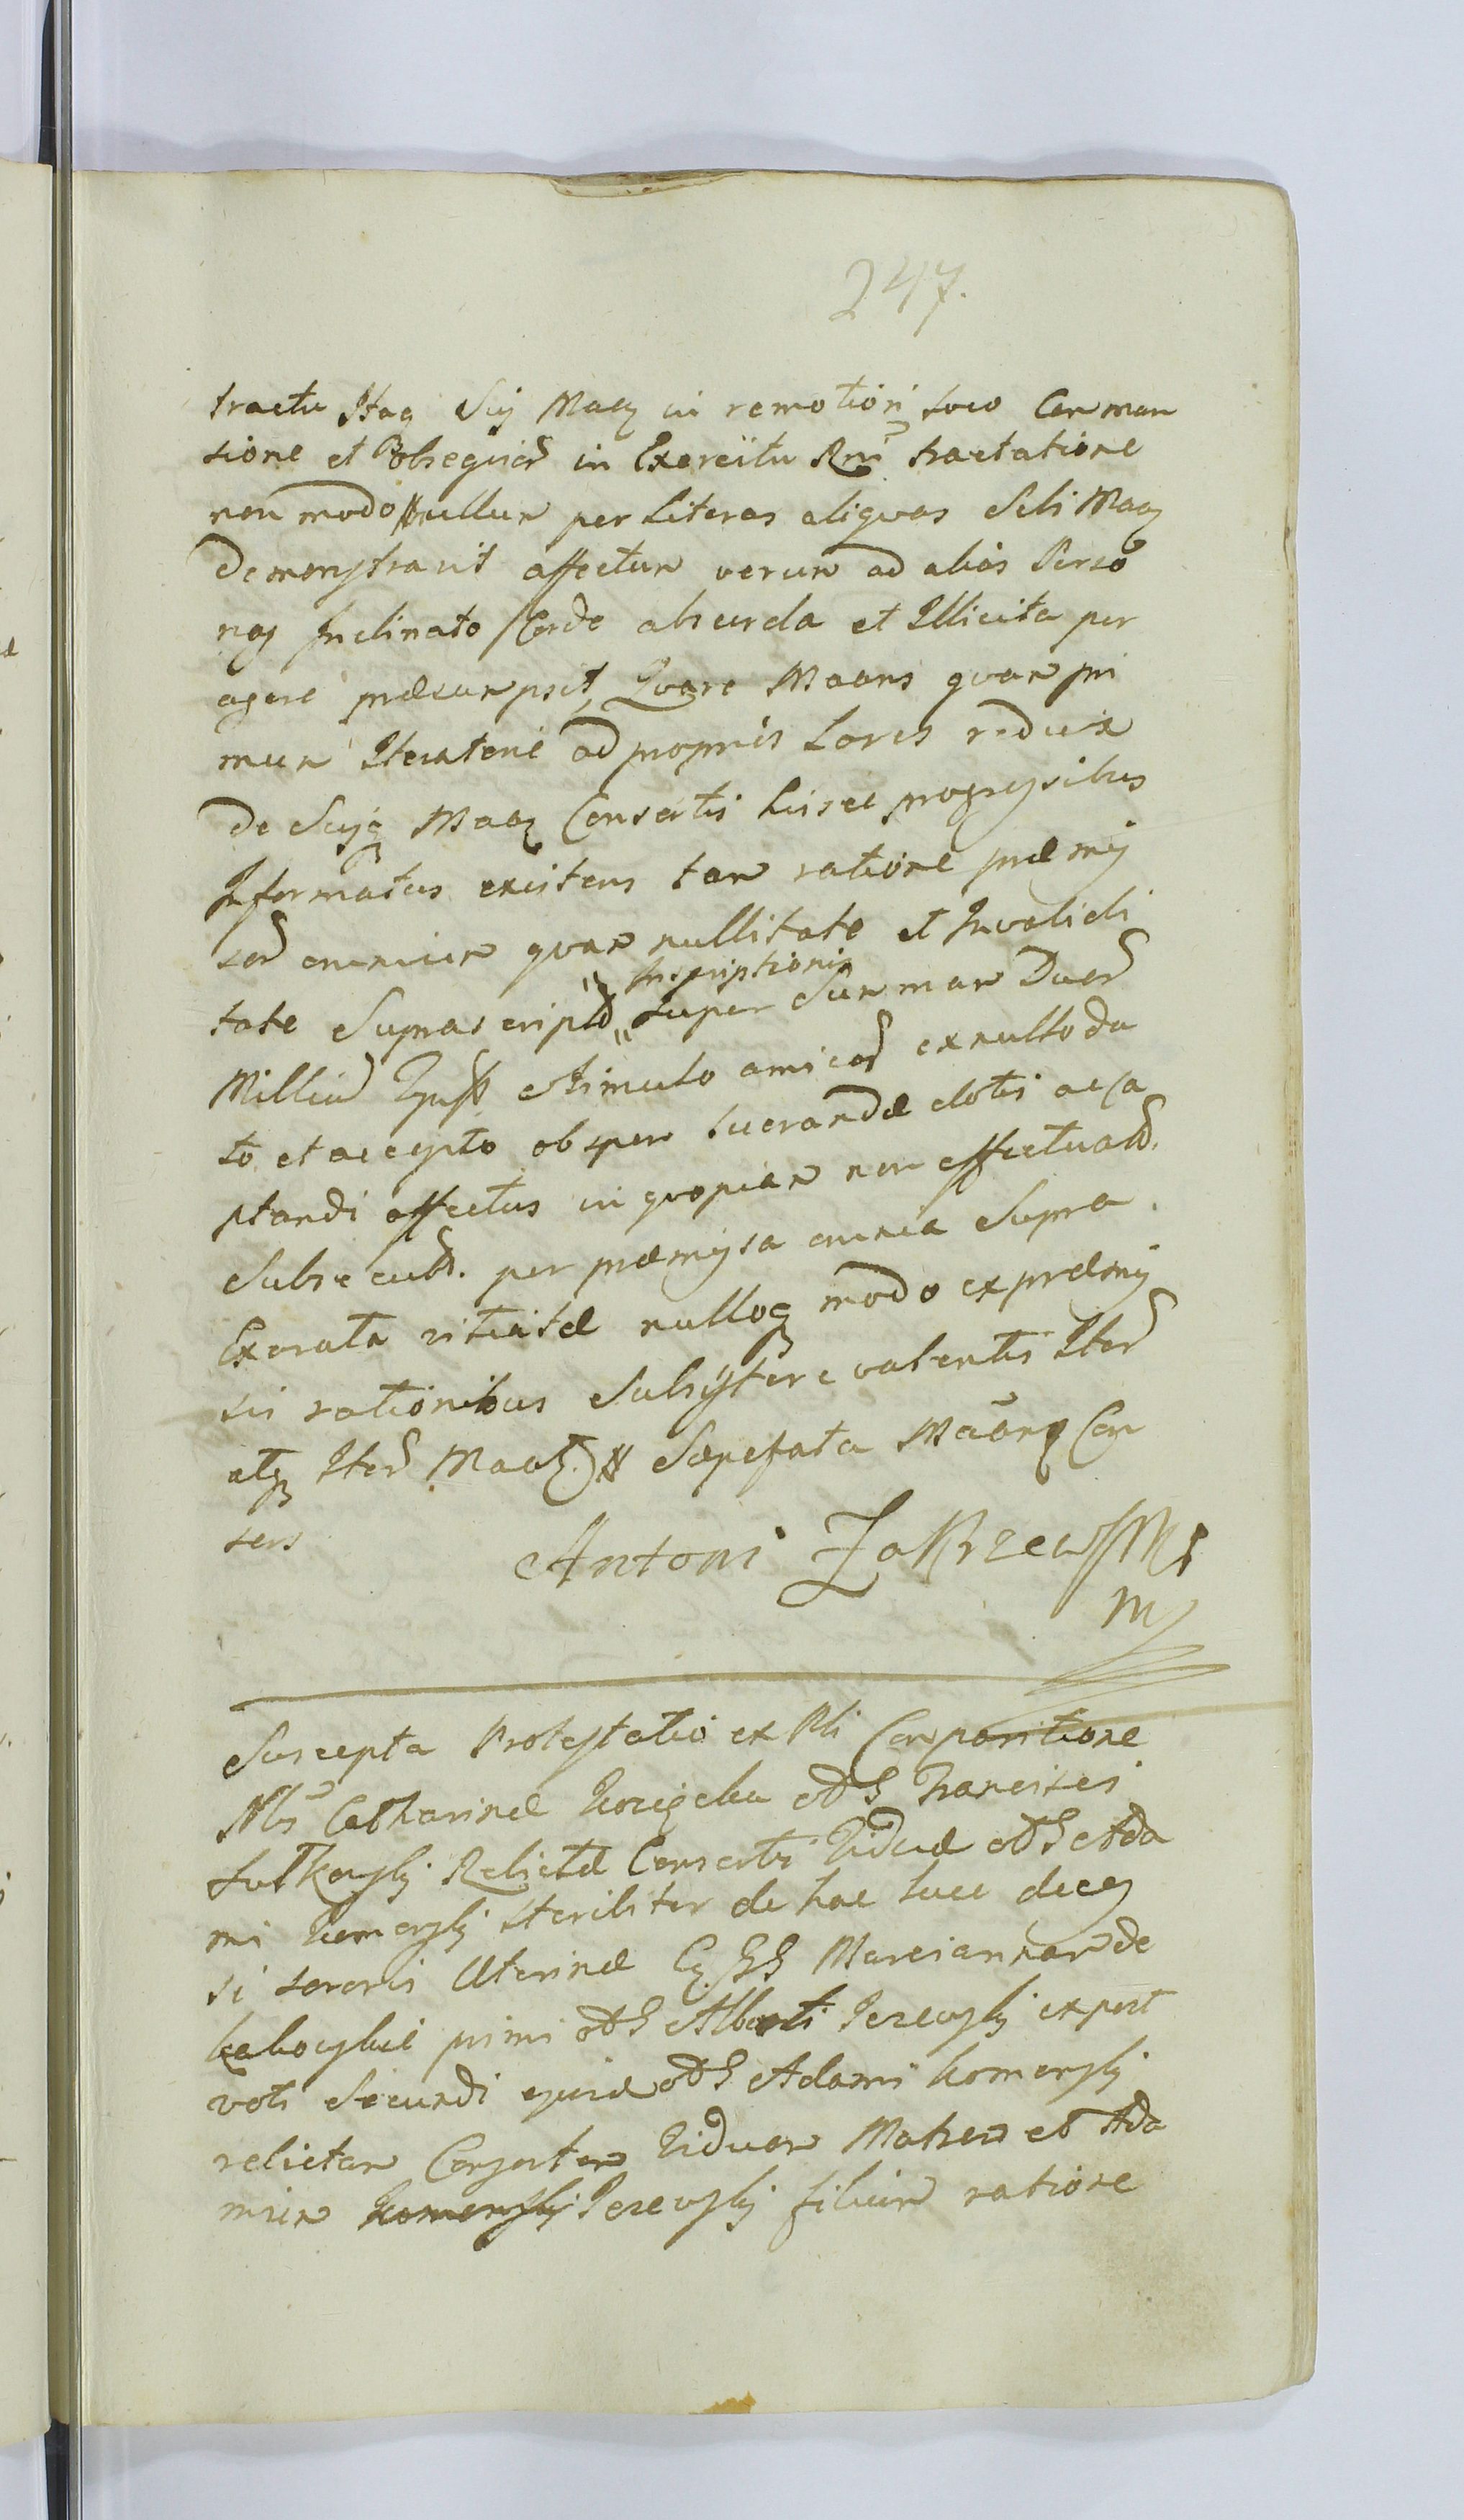 247.
tractu Itaq Sui Maaq in remotiori Loco Com man
sione et obsequior in Exercitu Rni tractatione
non modo nullum per Literas aliquas Sibi Maaq
Demonstravit affectum verum ad alias Perso
nas Inclinato Corde absurda et Illicita per
agere præsumpsit, Quare Maans quam pri
mum ad propries Lares redux
De Maaq Consortis huisce progressibus
Informatus existens tam ratione præmis
sor omnium quam nullitate et Invalidi
tate Suprascript Inscriptionis super Summam Duor
Millium Stimulo amicor ex nullo da
to et accepto ob spem lucrandæ dotis ac ca
ptandi affectus in quopiam non effectuat.
Subsecut. per præmissa omnia Supra
Exarata vitiatæ nulloq modo ex præmis
sis rationibus Subsistere valentis Iter
atq Iter Maaq. Sæpefata Maans Con
sors
Antoni Zakrzewski
mp
Suscepta Protestatio ex Pli Comparitione
Mls Catharinæ olim Francisci
Relictæ Consortis Viduæ olim Ada
mi Komorskj steriliter de hac luce deces
si sororis Uterinæ Marciannam de
primi olim Alberti Jezewskj expost
voti Secundi olim Adami Komorskj
relictam Consortem Viduam Matrem et Ada
mum Komorskj Jezewskj filium ratione